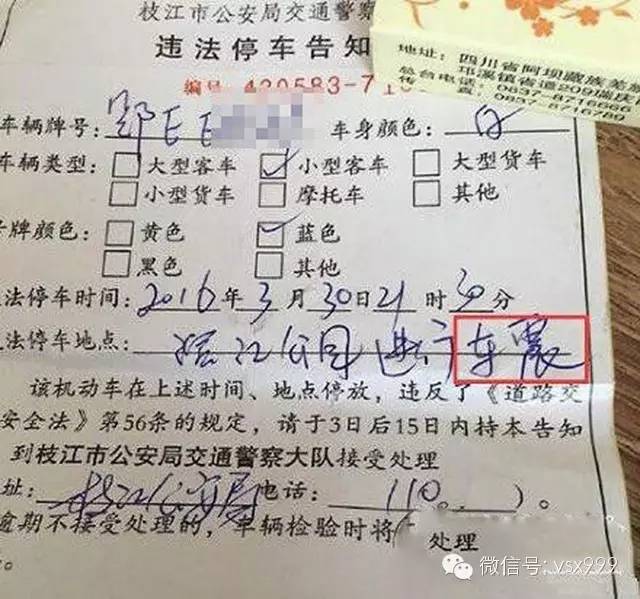 枝江市公安局交通警察
违法停车告知
编号 420583-71
车辆牌号：鄂E E 车身颜色：白
车辆类型：□大型客车 ☑小型客车 □大型货车
□小型货车 □摩托车 □其他
号牌颜色：□黄色 ☑蓝色
□黑色 □其他
法停车时间：2016年3月30日21时30分
法停车地点：滨江公园进行车震
该机动车在上述时间、地点停放，违反了《道路交
安全法》第56条的规定，请于3日后15日内持本告知
到枝江市公安局交通警察大队接受处理
址：枝江公安局电话：（110。）。
逾期不接受处理的，车辆检验时将
处理
。
地址：四川省阿坝藏族羌
邛溪镇省道209瑞庆
总台电话：0837-8716666
传真：0837-8716789
微信号：vsx999